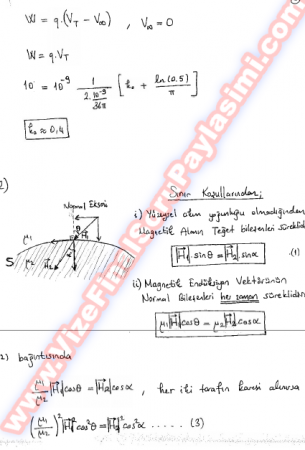 W = q.(V_T - V_∞) , V_∞ = 0
W = q.V_T
10 = 10^-9 1/(2.10^-9/36π) [h₀ + ln(0.5)/π]
h₀ ≈ 0,4
2)
Sınır Koşullarından;
Normal Ekseni
i) Yüzeysel akım yoğunluğu olmadığından
Magnetik Alanın Teğet bileşenleri süreklidir
|H₁|.sinθ = |H₂|.sinα (1)
μ₁ θ H₁
S μ₂ H₂ α
ii) Magnetik Endüksiyon Vektörünün
Normal Bileşenleri her zaman süreklidir
μ₁|H₁|cosθ = μ₂|H₂|cosα
2) bağıntısında
μ₁/μ₂ |H₁|cosθ = |H₂|cosα , her iki tarafın karesi alınırsa
(μ₁/μ₂)² |H₁|² cos²θ = |H₂|² cos²α ..... (3)
www.VizeFinalSoruPaylasimi.com